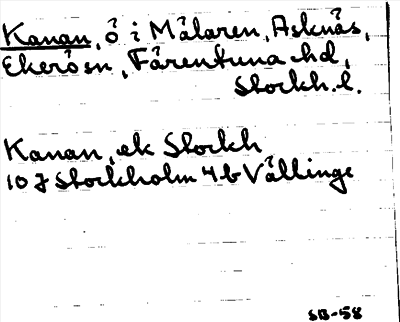 Kanan, ö i Mälaren, Asknäs,
Ekerö sn, Färentuna hd,
Stockh. l.
Kanan, ek Stockh
10 J Stockholm 4 b Vällinge
SB-58